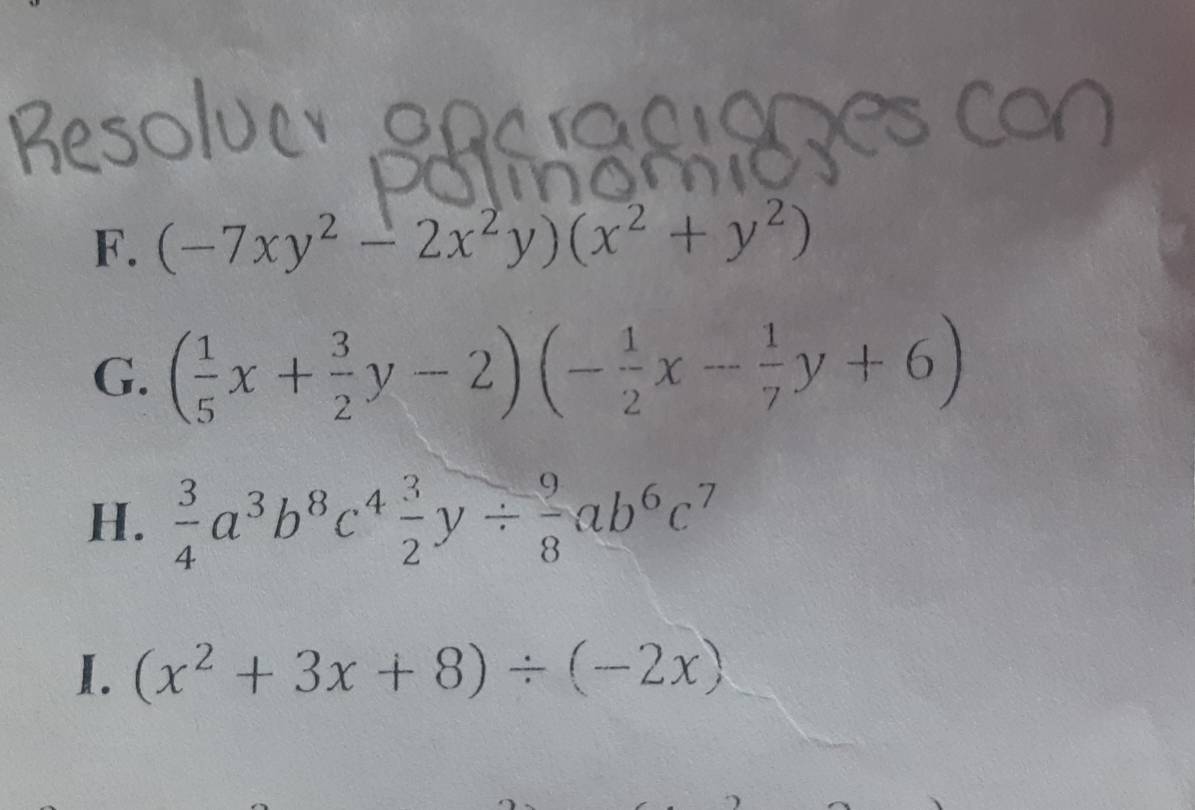 Resolver operaciones con
polinomios
F. (−7xy² − 2x²y)(x² + y²)
G. (1/5 x + 3/2 y − 2)(−1/2 x − 1/7 y + 6)
H. 3/4 a³b⁸c⁴ 3/2 y ÷ 9/8 ab⁶c⁷
I. (x² + 3x + 8) ÷ (−2x)